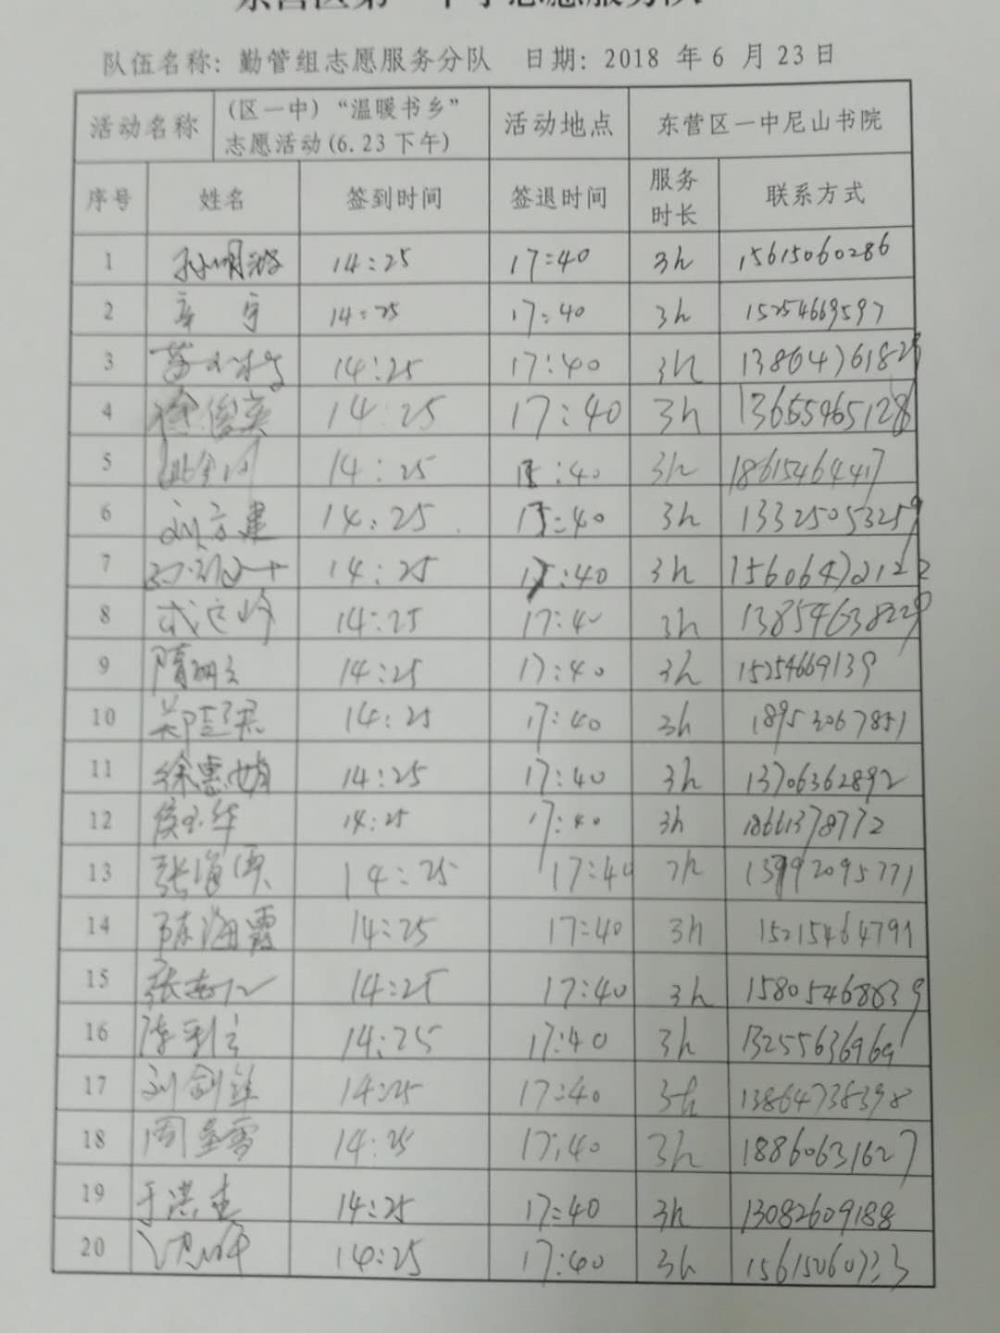 队伍名称：勤管组志愿服务分队 日期：2018 年 6 月 23 日
活动名称 (区一中)“温暖书乡”志愿活动(6.23下午) 活动地点 东营区一中尼山书院
序号 姓名 签到时间 签退时间 服务时长 联系方式
1 14:25 17:40 3h 15615060286
2 辛宁 14:25 17:40 3h 15254669597
3 14:25 17:40 3h
4 徐俊英 14:25 17:40 3h 13655465128
5 14:25 :40 3h 18615464417
6 刘立建 14:25 :40 3h 13325053259
7 14:25 :40 3h 15606472122
8 14:25 17:40 3h 13854638229
9 隋明立 14:25 17:40 3h 15254669139
10 14:25 17:40 3h 18953067851
11 徐惠娟 14:25 17:40 3h 13706362892
12 14:25 17:40 3h 18661378772
13 张海滨 14:25 17:40
14 陈海霞 14:25 17:40 3h 15215464791
15 14:25 17:40 3h 15805468839
16 陈利立 14:25 17:40 3h 13255636969
17 14:25 17:40 3h 13864738398
18 14:25 17:40 3h 18860631627
19 于洪杰 14:25 17:40 3h 13082609188
20 14:25 17:40 3h